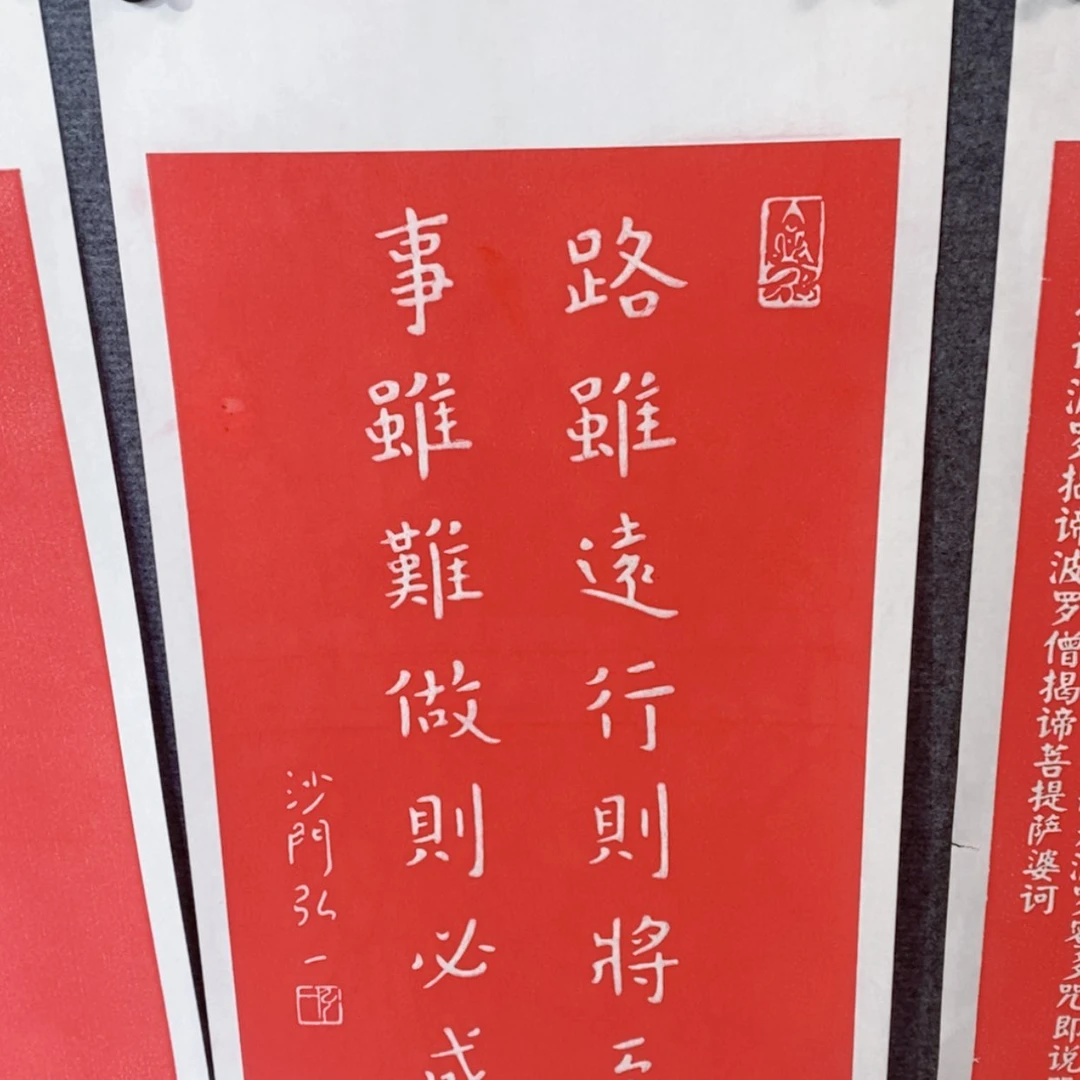 多咒即说
波罗揭谛波罗僧揭谛菩提萨婆诃
路雖遠行則將
事雖難做則必成
沙門弘一